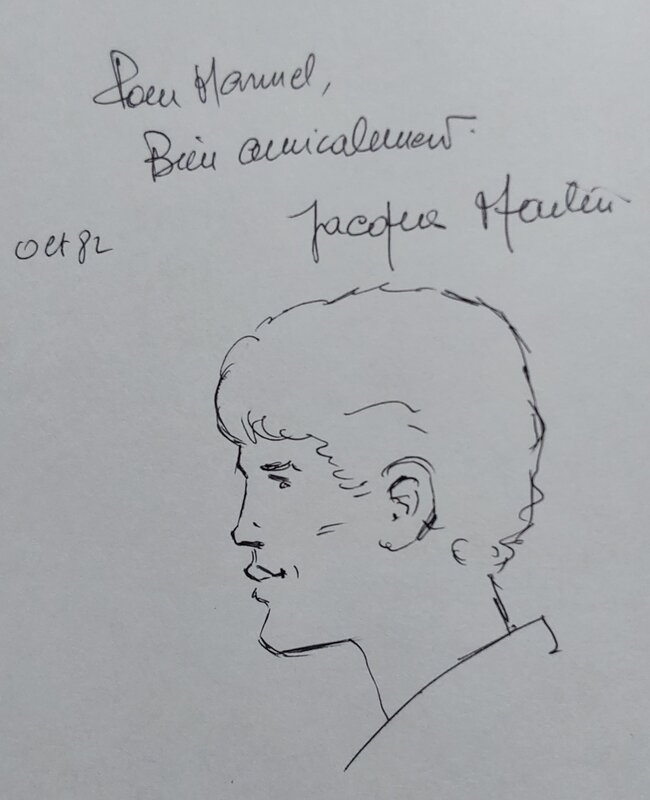 Pour Manuel,
Bien amicalement.
Jacques Martin
Oct 82